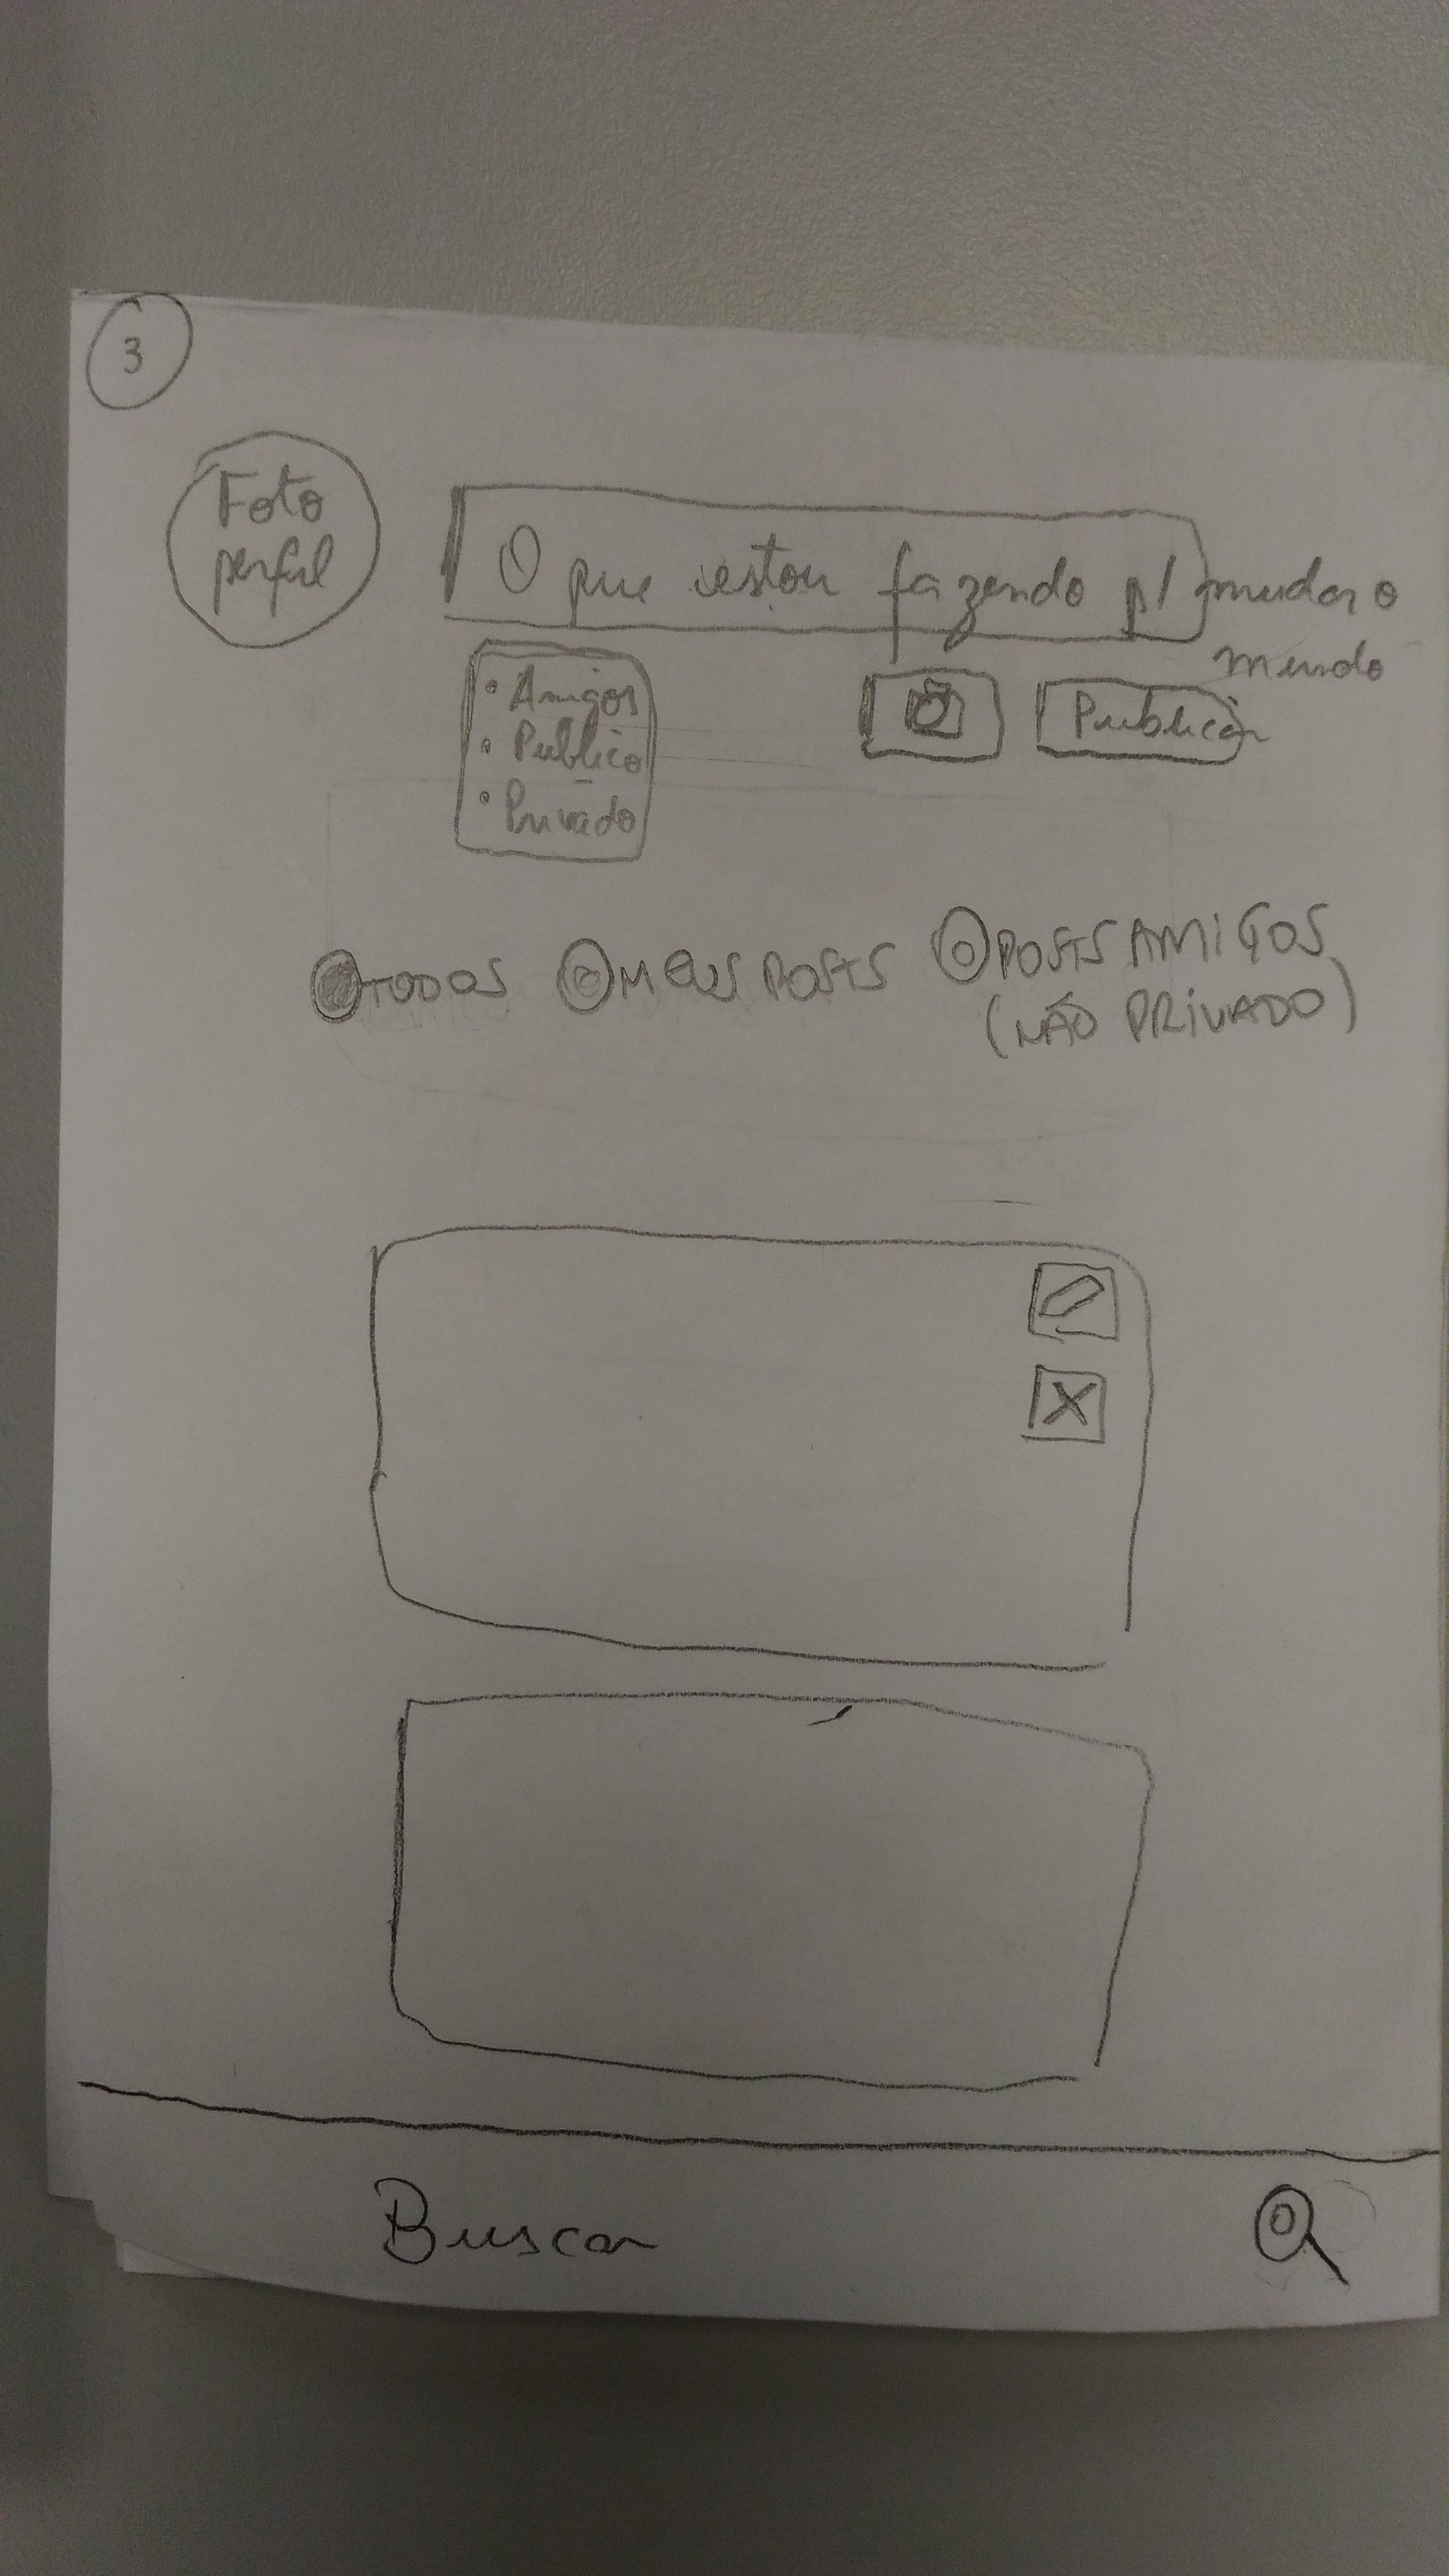 3
Foto
perfil
O que estou fazendo p/ mudar o
mundo
Amigos
Publico
Privado
Publicar
TODOS
MEUS POSTS
POSTS AMIGOS
(NÃO PRIVADO)
X
Buscar